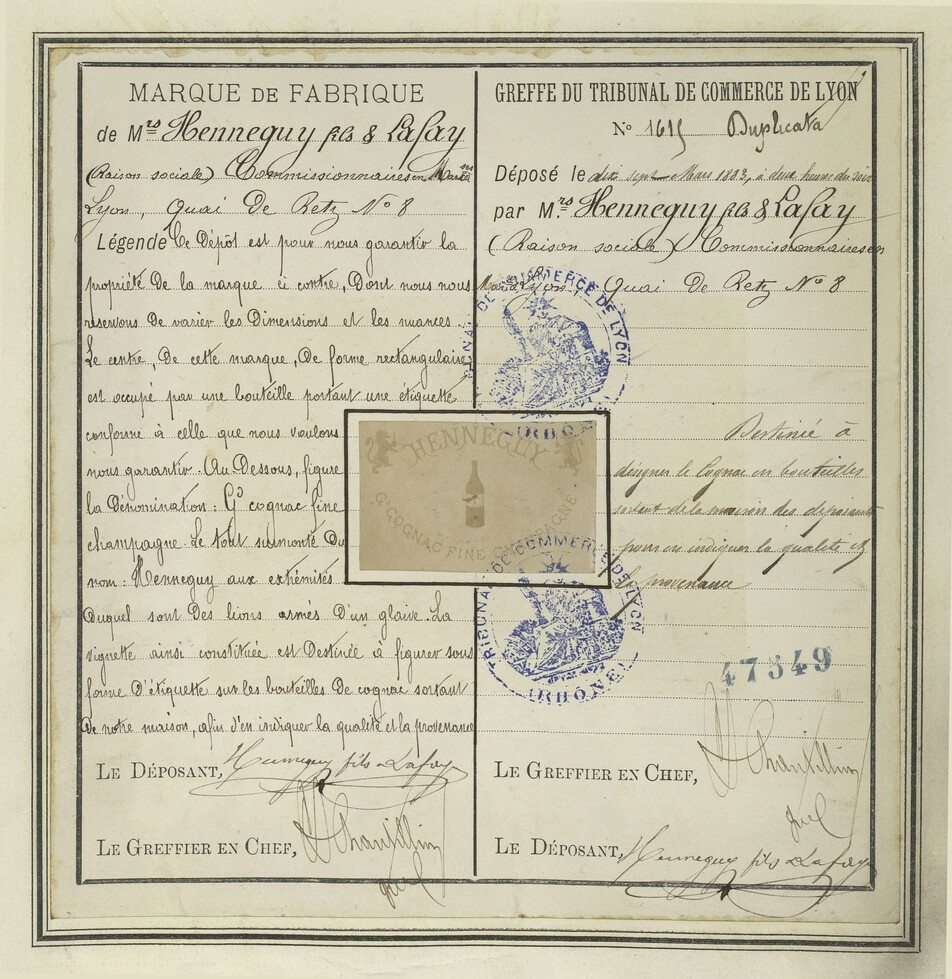 MARQUE DE FABRIQUE
de Mrs Henneguy fils & Lafay
(Raison sociale) Commissionnaires en Marses
Lyon, Quai De Retz No 8
Légende Ce Dépôt est pour nous garantir la
propriété de la marque ci contre, Dont nous nous
réservons De varier les Dimensions et les nuances.
Le centre, De cette marque, De forme rectangulaire
est occupé par une bouteille portant une étiquette
conforme à celle que nous voulons
nous garantir. Au Dessous, figure
la Dénomination: Gd cognac fine
champagne. Le tout surmonté Du
nom: Henneguy aux extrémités
Duquel sont Des lions armés D'un glaive. La
vignette ainsi constituée est Destinée à figurer sous
forme D'étiquette sur les bouteilles De cognac sortant
De notre maison, afin d'en indiquer la qualité et la provenance
LE DÉPOSANT, Henneguy fils & Lafay
LE GREFFIER EN CHEF,
HENNEGUY
Gd COGNAC FINE CHAMPAGNE
GREFFE DU TRIBUNAL DE COMMERCE DE LYON
No 1615 Duplicata
Déposé le dix sept Mars 1883, à deux heures du soir
par Mrs Henneguy fils & Lafay
(Raison sociale) Commissionnaires en
Lyon, Quai De Retz No 8
TRIBUNAL DE COMMERCE DE LYON
(RHÔNE)
Destinée à
désigner le Cognac en bouteilles
sortant de la maison des déposants
pour en indiquer la qualité et
la provenance
TRIBUNAL DE COMMERCE DE LYON
(RHÔNE)
47549
LE GREFFIER EN CHEF,
LE DÉPOSANT, Henneguy fils & Lafay